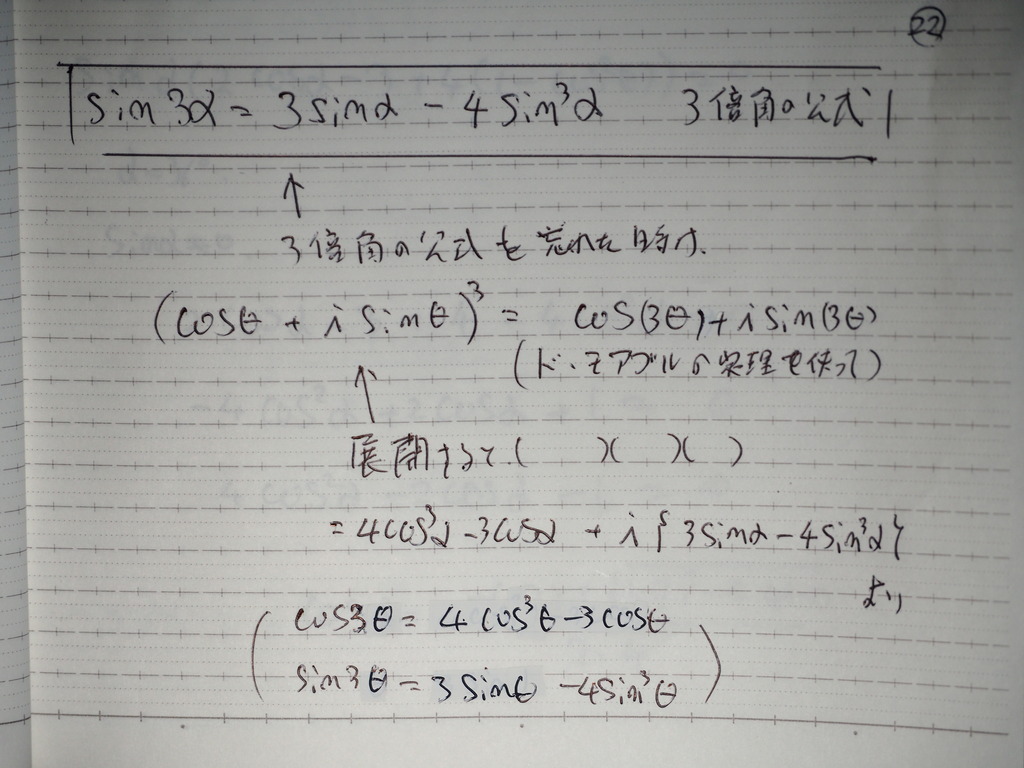 22
sin 3α = 3 sinα - 4 sin³α 3倍角の公式
↑
3倍角の公式を忘れた時は、
(cosθ + i sinθ)³ = cos(3θ) + i sin(3θ)
(ド・モアブルの定理を使って)
↑
展開すると( )( )( )
= 4cos³α - 3cosα + i { 3 sinα - 4 sin³α }
より
cos3θ = 4 cos³θ - 3 cosθ
sin3θ = 3 sinθ - 4 sin³θ